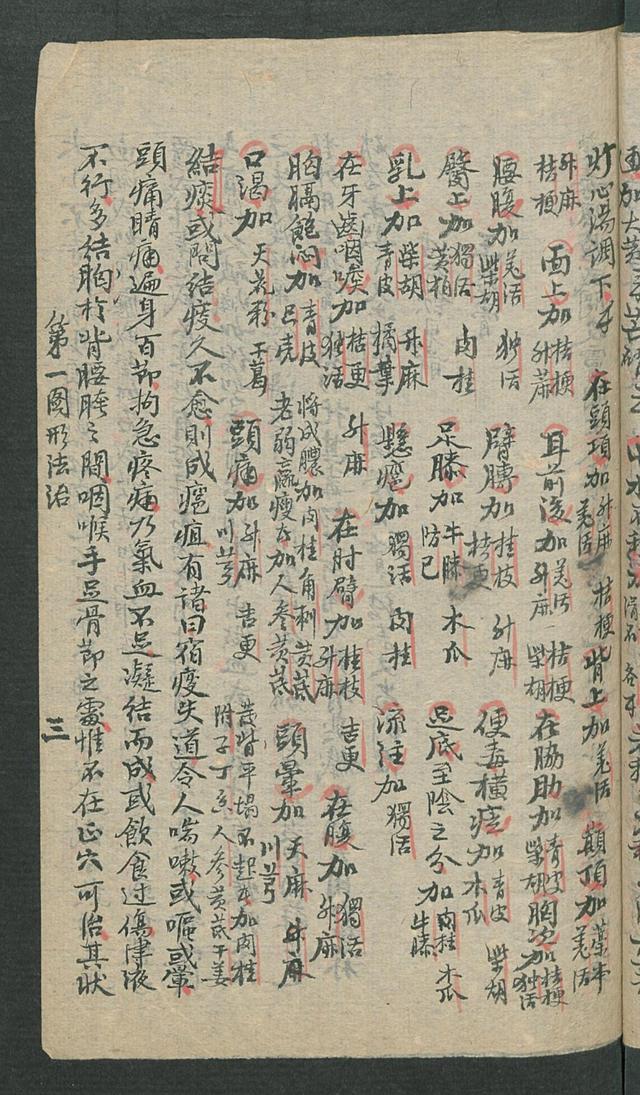 貯心湯調下
在頭項加升麻 羌活 桔梗 背上加羌活 巔頂加藁本 羌活
升麻 桔梗 面上加桔梗 升麻 耳前後加羌活 升麻 桔梗 柴胡 在脇肋加青皮 柴胡 胸次加桔梗 独活
腰腹加羌活 柴胡 独活 臂膊加桂枝 桔更 升麻 便毒橫痃加青皮 木瓜 柴胡
臀上加獨活 黃柏 肉桂 足膝加牛膝 防已 木瓜 足底至陰之分加肉桂 牛膝 木瓜
乳上加柴胡 青皮 升麻 橘葉 懸癰加獨活 肉桂 流注加獨活
在牙齒咽喉加桔更 独活 升麻 在肘臂加桂枝 升麻 吉更 在腹加獨活 升麻
胸膈飽悶加青皮 只壳 將成膿加肉桂角刺黃芪 老弱羸瘦者加人參黃芪 頭暈加天麻 川芎 升麻
口渴加天花粉 干葛 頭痛加升麻 川芎 吉更 瘡背平塌不起者加肉桂 附子丁香人參黃芪干姜
結痰或問結痰久不愈則成癰疽有諸曰宿痰失道令人喘嗽或嘔或暈
頭痛睛痛遍身百節拘急疼痛乃氣血不足凝結而成或飲食过傷津液
不行多結胸於背腰胯之間咽喉手足骨節之處惟不在正穴可治其狀
第一圖形法治
三